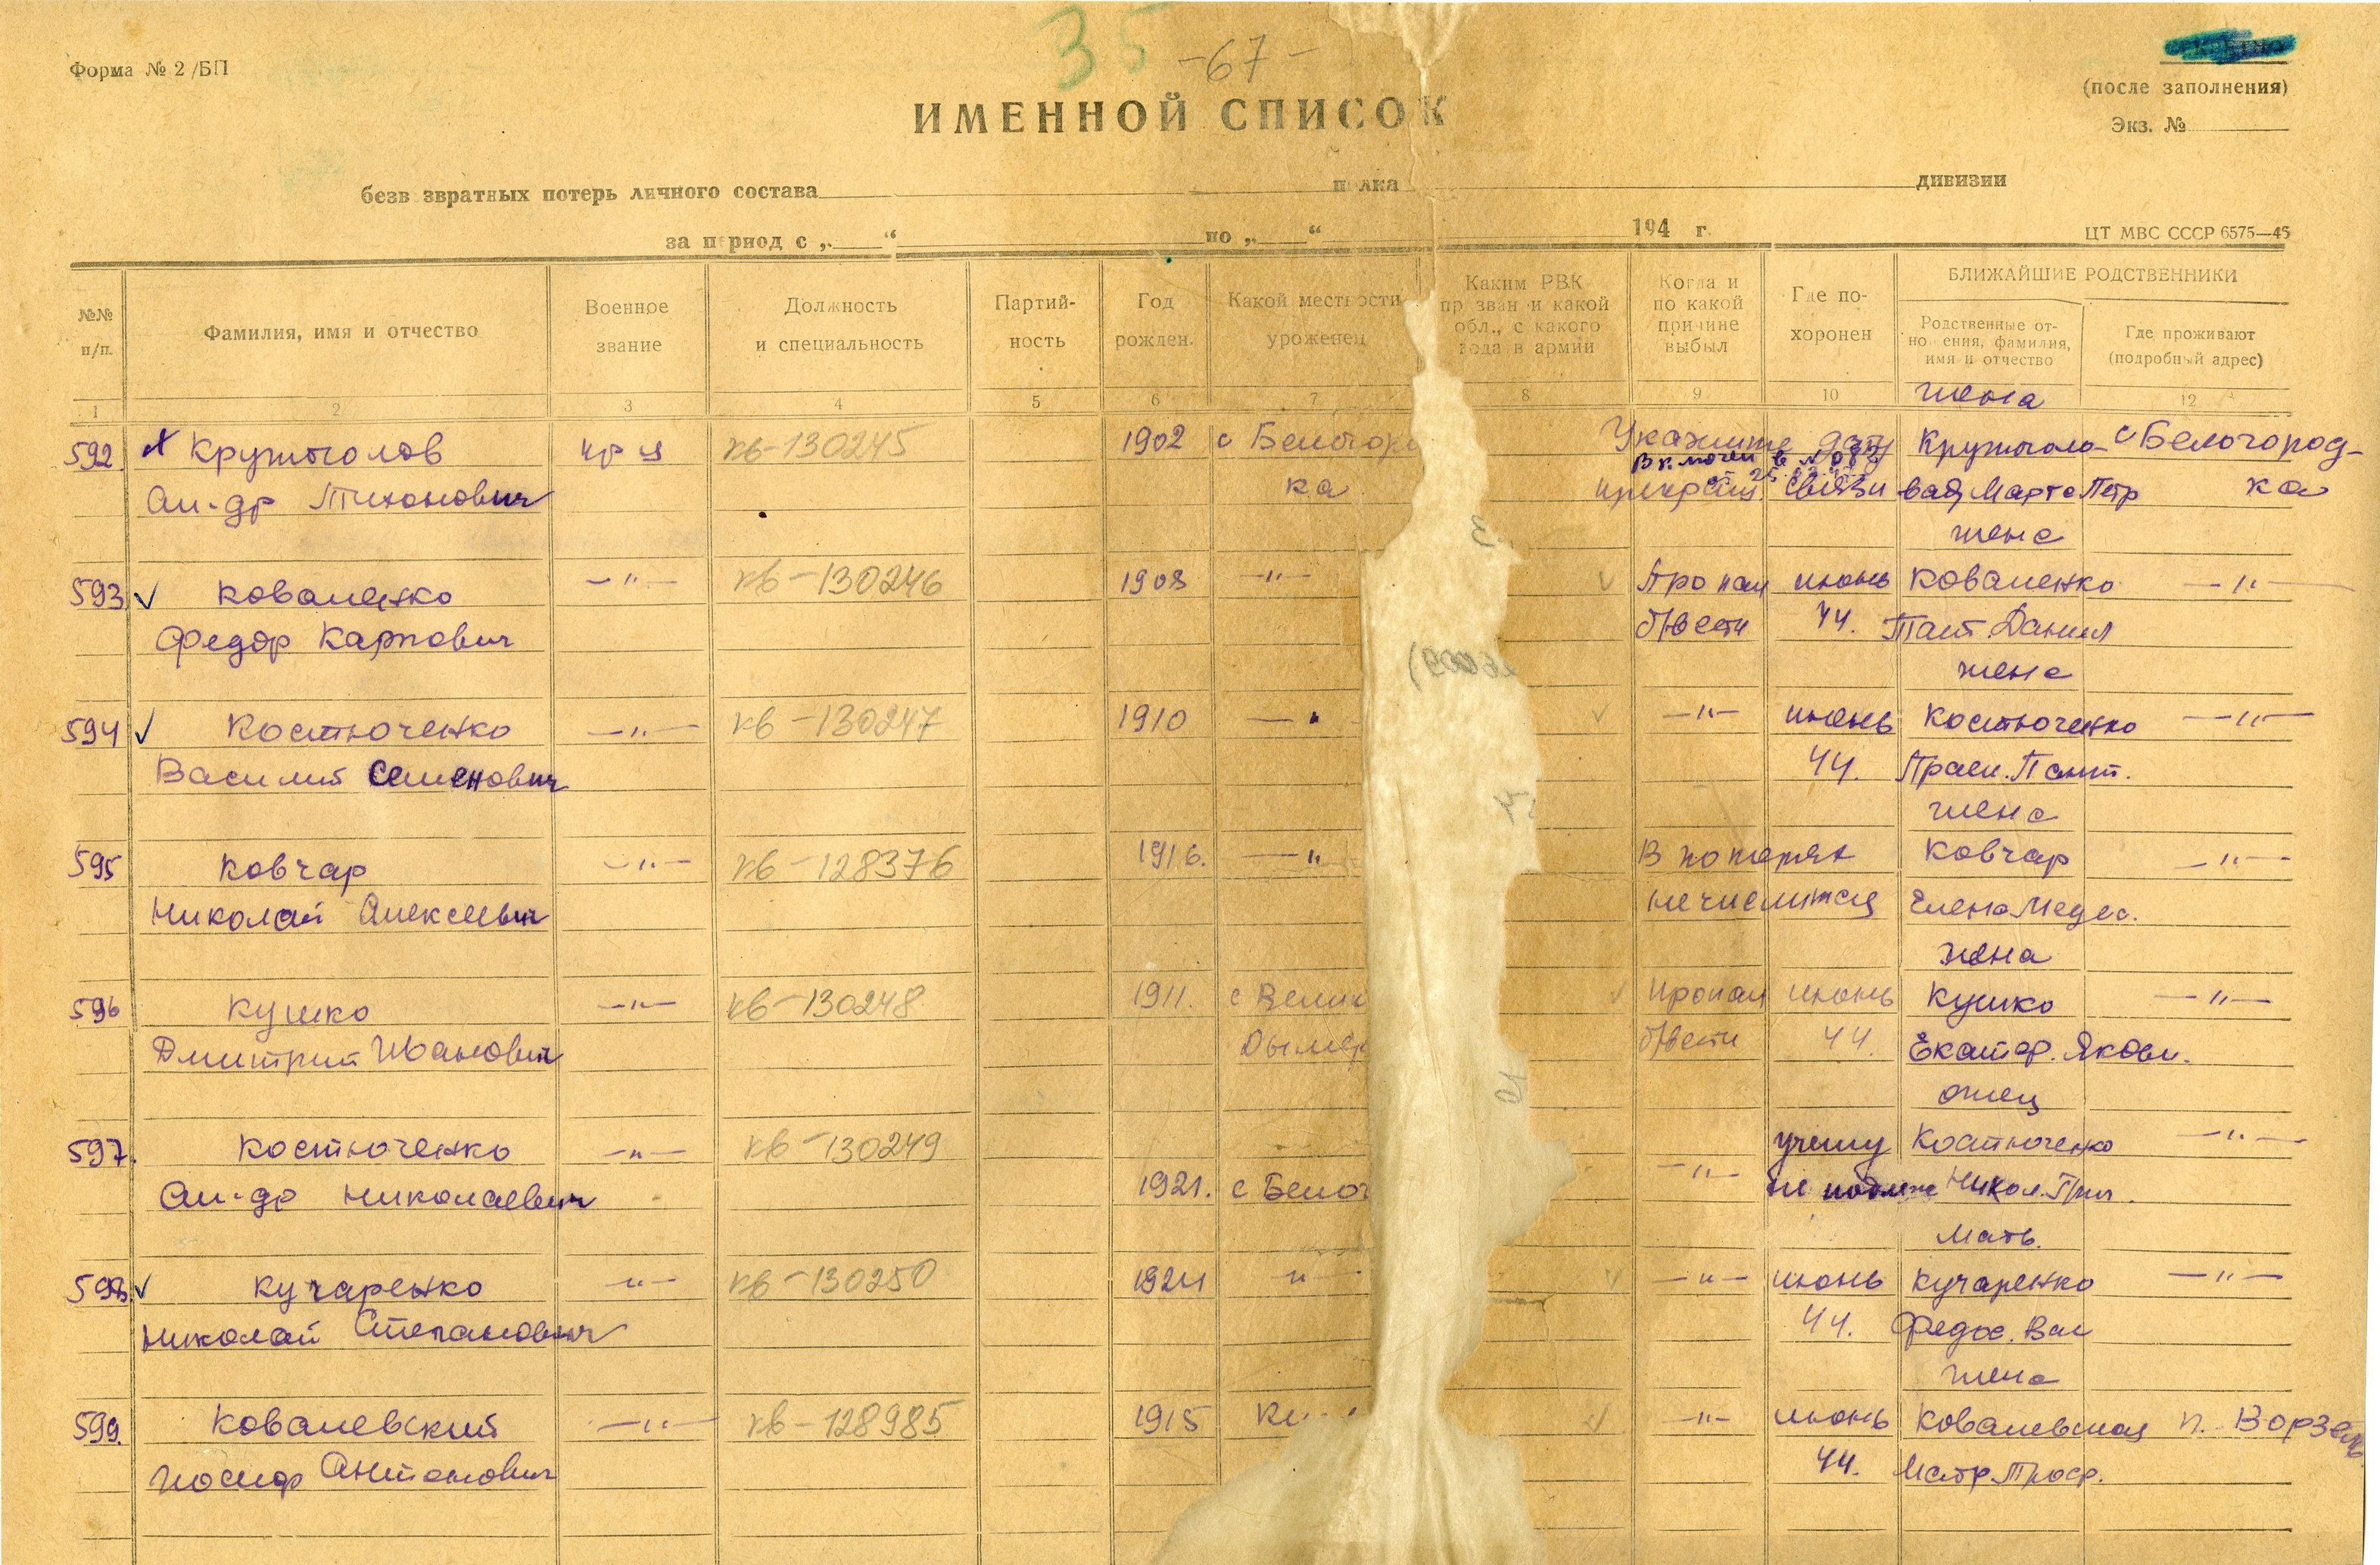 35
-67-
Форма № 2/БП
(после заполнения)
Экз. №
ИМЕННОЙ СПИСОК
безвозвратных потерь личного состава полка дивизии
за период с „ “ по „ “ 194 г.
ЦТ МВС СССР 6575—45
№№ п/п.
Фамилия, имя и отчество
Военное звание
Должность и специальность
Партий-ность
Год рожден.
Какой местности уроженец
Каким РВК призван и какой обл., с какого года в армии
Когда и по какой причине выбыл
Где по-хоронен
БЛИЖАЙШИЕ РОДСТВЕННИКИ
Родственные от-ношения, фамилия, имя и отчество
Где проживают (подробный адрес)
1 2 3 4 5 6 7 8 9 10 12
жена
592. Кружколов кр-ц кв-130245 1902 с Белогор Укажите дату Кружколо- с Белогород-
Ал-др Тихонович ка прекращ. связи вая Марта Петр ка
жена
593. Коваленко —"— кв-130246 1908 —"— Пропал июнь Коваленко —"—
Федор Карпович б/вести 44. Тат. Данил
жена
594 Костюченко —"— кв-130247 1910 —"— —"— июнь Костюченко —"—
Василий Семенович 44. Праск. Пант.
жена
595 Ковчар —"— кв-128376 1916. —"— В потерях Ковчар —"—
Николай Алексеевич не числится Елена
жена
596 Кушко —"— кв-130248 1911. с Велик Пропал июнь Кушко —"—
Дмитрий Иванович Дымер б/вести 44. Екатер. Яковл.
отец
597. Костюченко —"— кв-130249 учету Костюченко —"—
Ал-др Николаевич 1921. с Белог —"— не подлеж Никол. Григ.
Мать.
598. Кучаренко —"— кв-130250 1924 —"— —"— июнь Кучаренко —"—
Николай Степанович 44. Федос. Вас
жена
599. Ковалевский —"— кв-128985 1915 —"— июнь Ковалевская п. Ворзель
Иосиф Антонович 44.